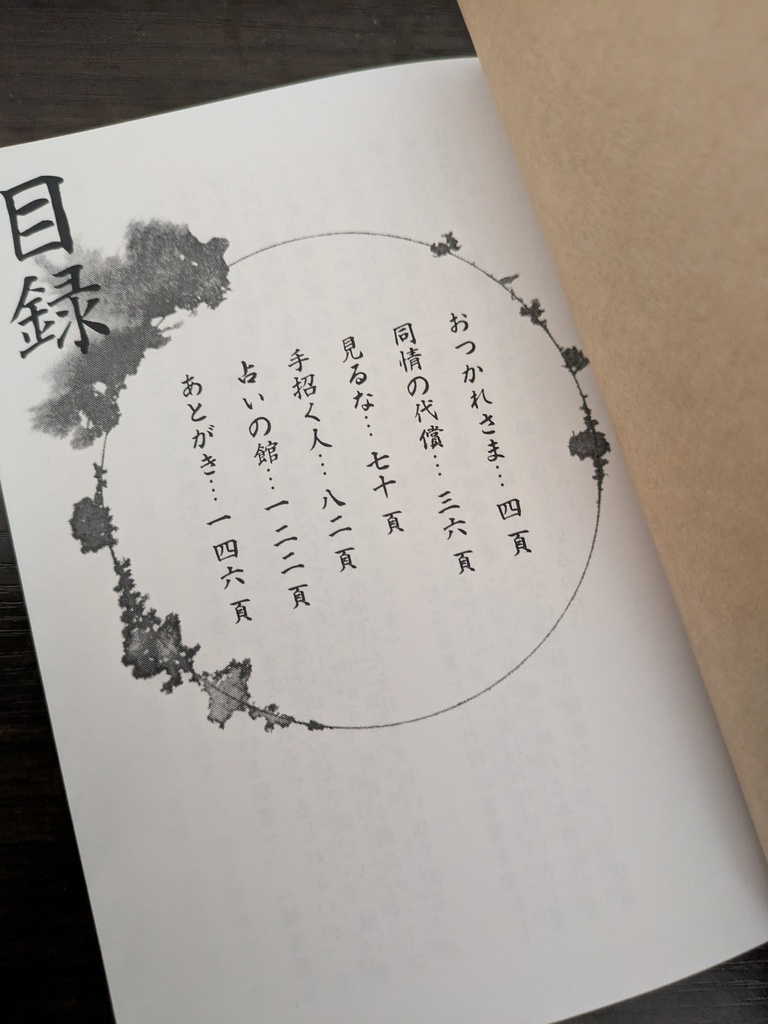 目録
おつかれさま…四頁
同情の代償…三六頁
見るな…七十頁
手招く人…八二頁
占いの館…一二二頁
あとがき…一四六頁